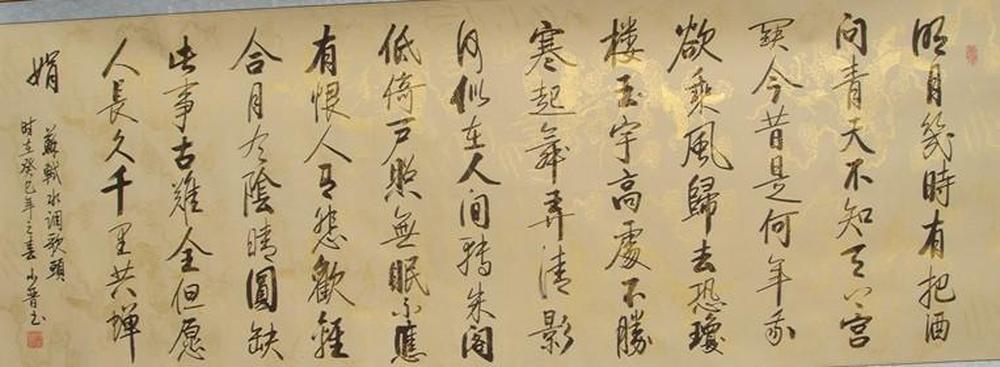 明月幾時有把酒
问青天不知天上宫
阙今昔是何年我
欲乘風歸去恐瓊
楼玉宇高處不勝
寒起舞弄清影
何似在人间轉朱阁
低倚户照無眠不應
有恨人有悲歡離
合月有陰晴圓缺
此事古難全但愿
人長久千里共蝉
娟
蘇軾水调歌頭
时在癸巳年之春小晋书